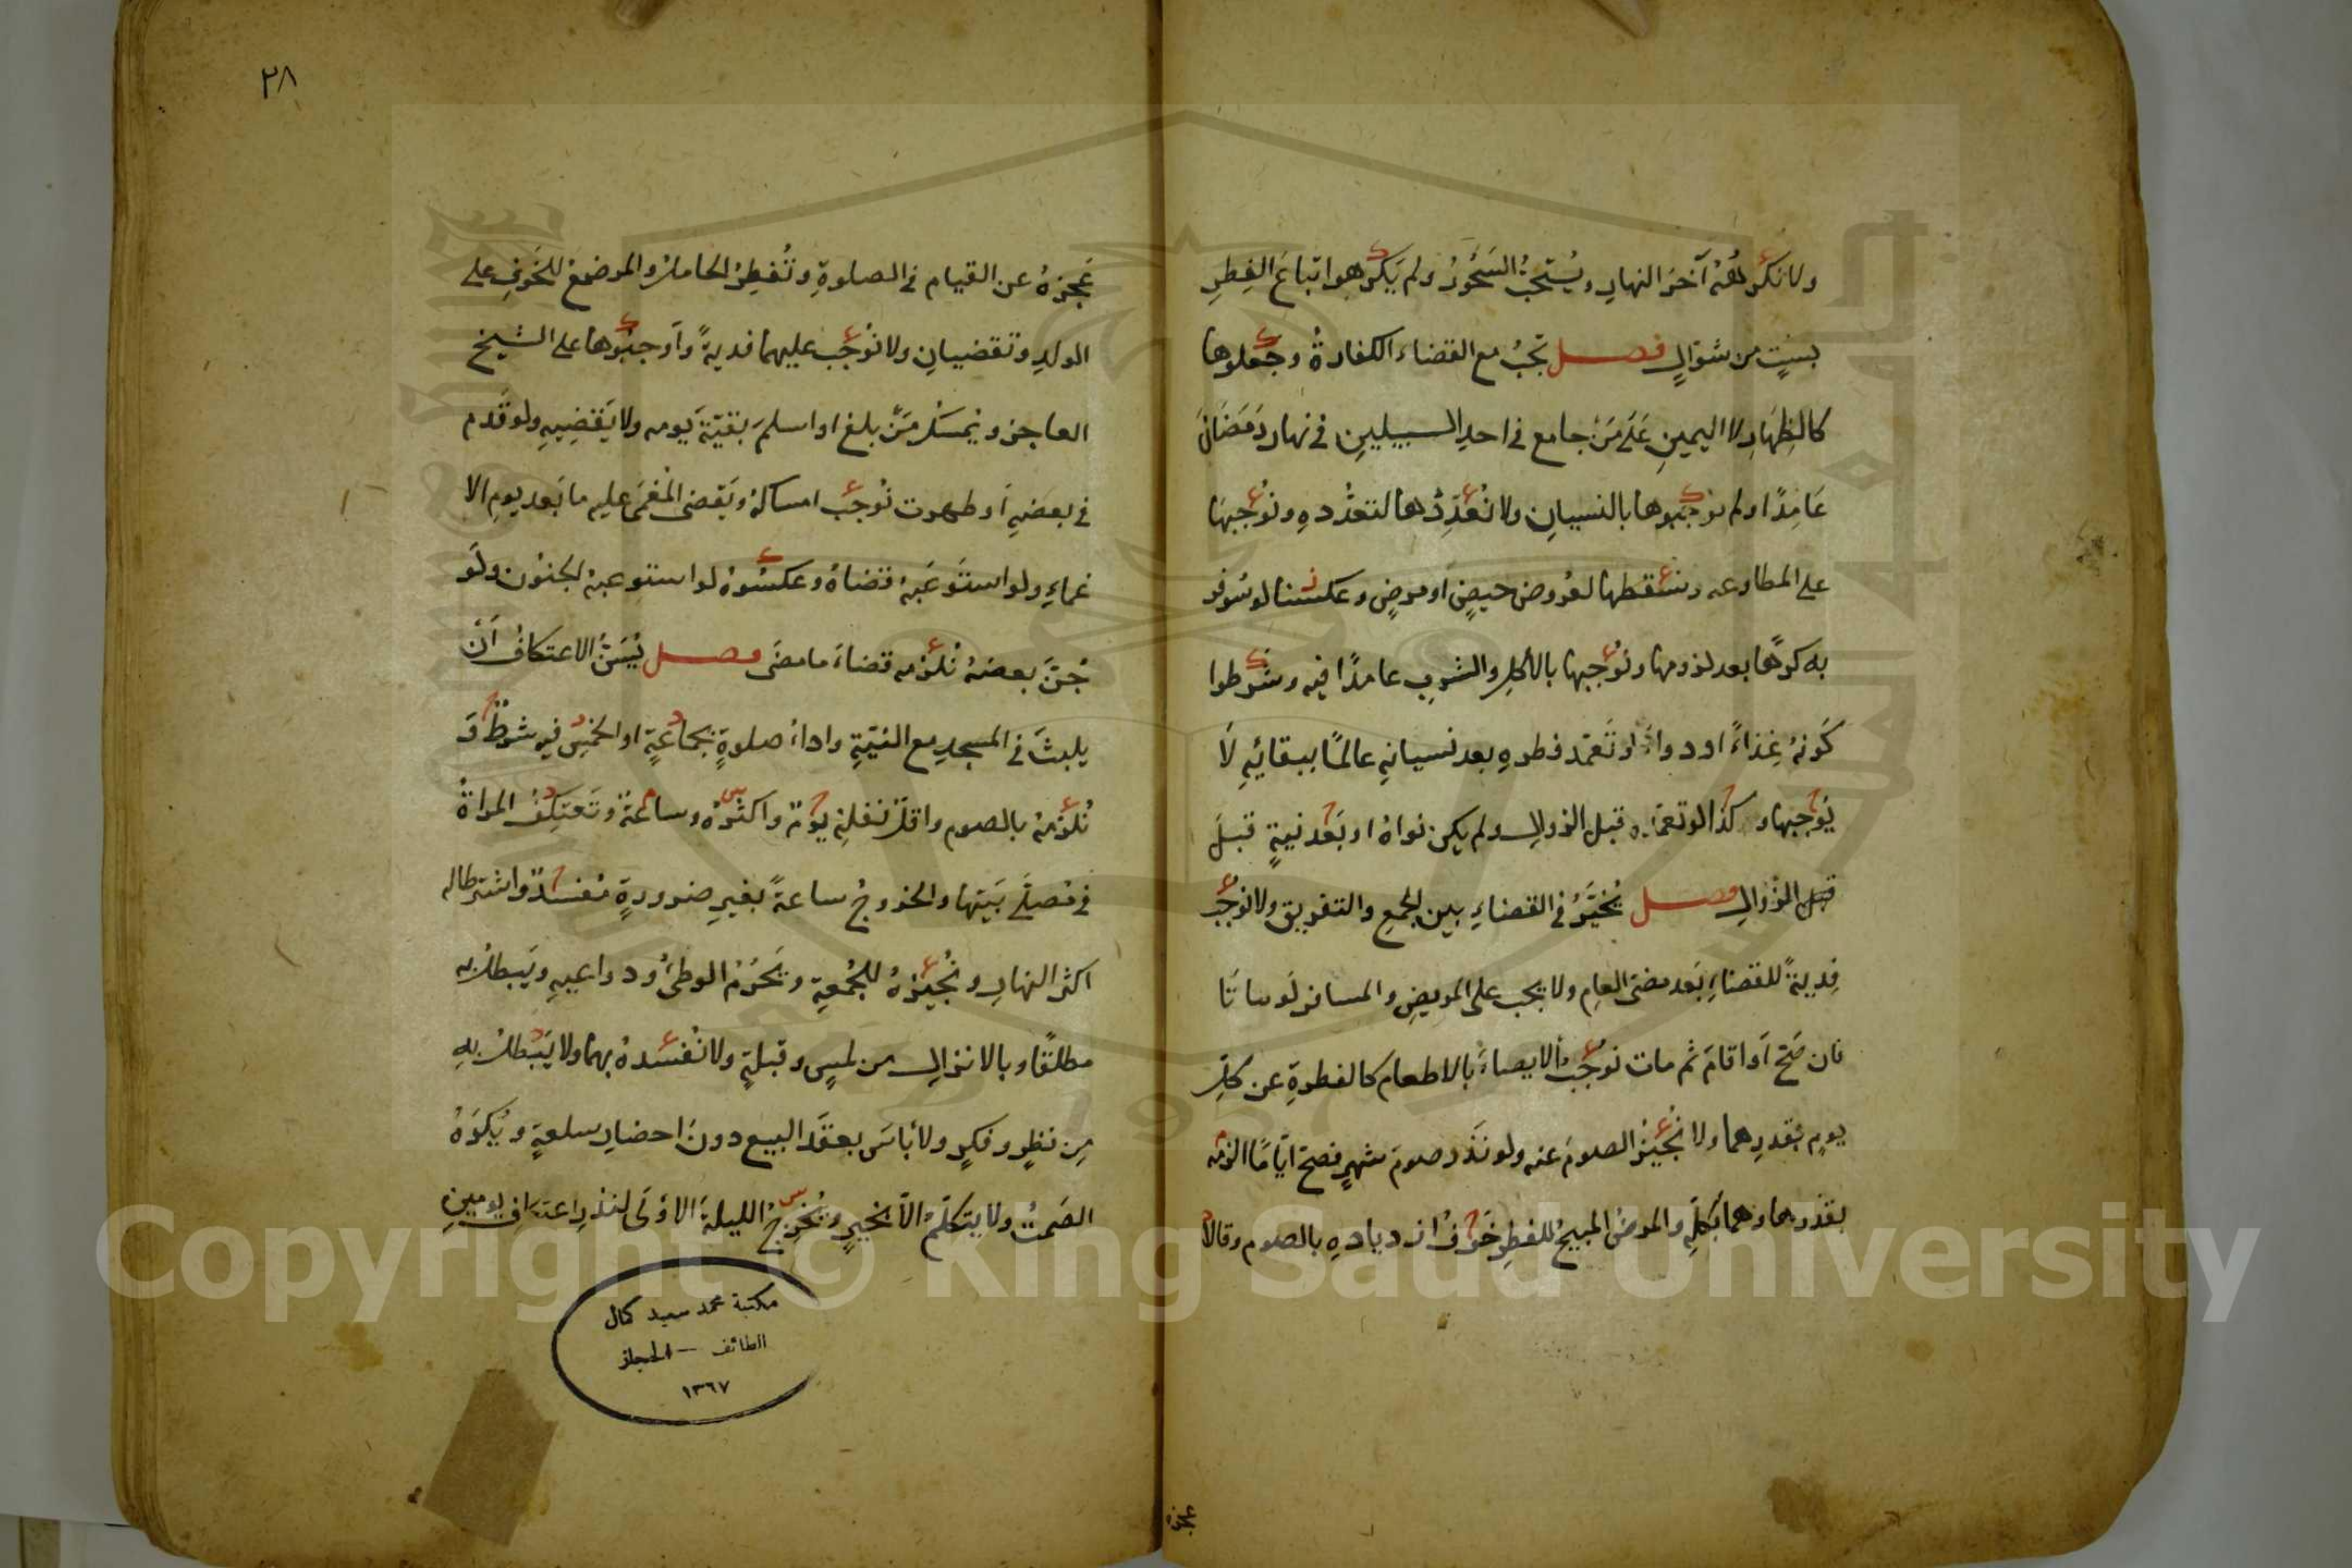 ولا نكرهُهُ آخرَ النهارِ ويُستحبُّ السَّحُورُ ولم يكرهوا اتباعَ الفِطرِ
بستٍ من شوّالٍ فصل تجبُ مع القضاءِ الكفارةُ وجعلوها
كالظِهَارِ لا اليمينِ عَلَى مَنْ جامع في احدِ السبيلينِ في نهارِ رَمَضَانَ
عَامِدًا ولم يوجبوها بالنسيانِ ولا نُعَدِّدُها لتعدُّدِهِ ونُوجِبُها
على المطاوعه ونسقطها لعُروضِ حيضٍ أو مرضٍ وعكسنا لو سُوفر
به كرهًا بعد لزومها ونُوجبها بالأكلِ والشربِ عامدًا فيه وشرطوا
كَونهُ غِذاءً او دواءً او تَعمّد فطرهِ بعد نسيانهِ عالمًا ببقائِهِ لَا
يُوجبها وكذا لو تعمّده قبل الزوالِ ولم يكن نواهُ او بَعد نيةٍ قبلَ
قبل الزّوالِ فصل يُخيَّرُ في القضاءِ بين الجمعِ والتفريقِ ولا نوجبُ
فِديةً للقضاءِ بَعد مضىّ العامِ ولا يجب على المريضِ والمسافر لَو ماتَا
فان صَحَّ أو اقامَ ثم مات نوجبُ الايصاءَ بالاطعام كالفطرةِ عن كلِّ
يومٍ بقدرِهما ولا نُجيزُ الصلومَ عنه ولو نَذَر صومَ شهرٍ فصحّ ايّامًا الزمَه
بقدرهما وهما بكلِّه والمرضُ المبيحُ للفطرِ خَوفُ ازديادهِ بالصوم وقالا
عجزه
٢٨
عَجزهُ عن القيامِ في الصلوةِ وتُفطِرُ الحاملُ والمرضعُ للخَوفِ على
الولدِ وتقضيانِ ولا نُوجب عليهما فديةً وأوجبُوها على الشيخ
العاجز ويُمسكُ مَنْ بلغ او اسلمَ بقيّةَ يَومه ولا يَقضِيهِ ولو قَدم
في بعضِهِ أو طهرت نُوجب امساكهُ ويَقضى المُغمَى عليه ما بَعد يومِ الا
غماءِ ولو استَوعَبهُ قضاهُ وعكسُوهُ لو استوعبهُ الجنُون ولَو
جُنَّ بعضهُ نُلزمه قضاءَ ما مضَى فصل يُسَنُّ الاعتكافُ أنْ
يلبثَ في المسجدِ مع النيّةِ واداءِ صلوةٍ بجماعةٍ او الخمسِ فيه شرطٌ وَ
نُلزمهُ بالصوم واقلّ نفلهِ يومٌ واكثرُه وساعةٌ وتَعتكِفُ المراةُ
في مُصلَّى بَيتها والخروجُ ساعةً بغيرِ ضرورةٍ مُفسدٌ واشترطا له
اكثر النهارِ ونُجيزهُ للجُمعةِ ويَحرُمُ الوطئُ ودواعيهِ ويَبطلُ به
مطلقًا وبالانزالِ من لمسٍ وقبلةٍ ولا نُفسدهُ بهما ولا يَبطلُ به
مِن نظرٍ وفكرٍ ولا بأسَ بعقَد البيع دونَ احضارِ سلعةٍ ويُكرَهُ
الصَمتُ ولا يَتكلّمُ الّا بخيرٍ ويُخرِجُ الليلةَ الأولَى لنذرِ اعتكافِ يومينِ
مكتبة محمد سعيد كمال
الطائف - الحجاز
١٣٦٧
Copyright © King Saud University